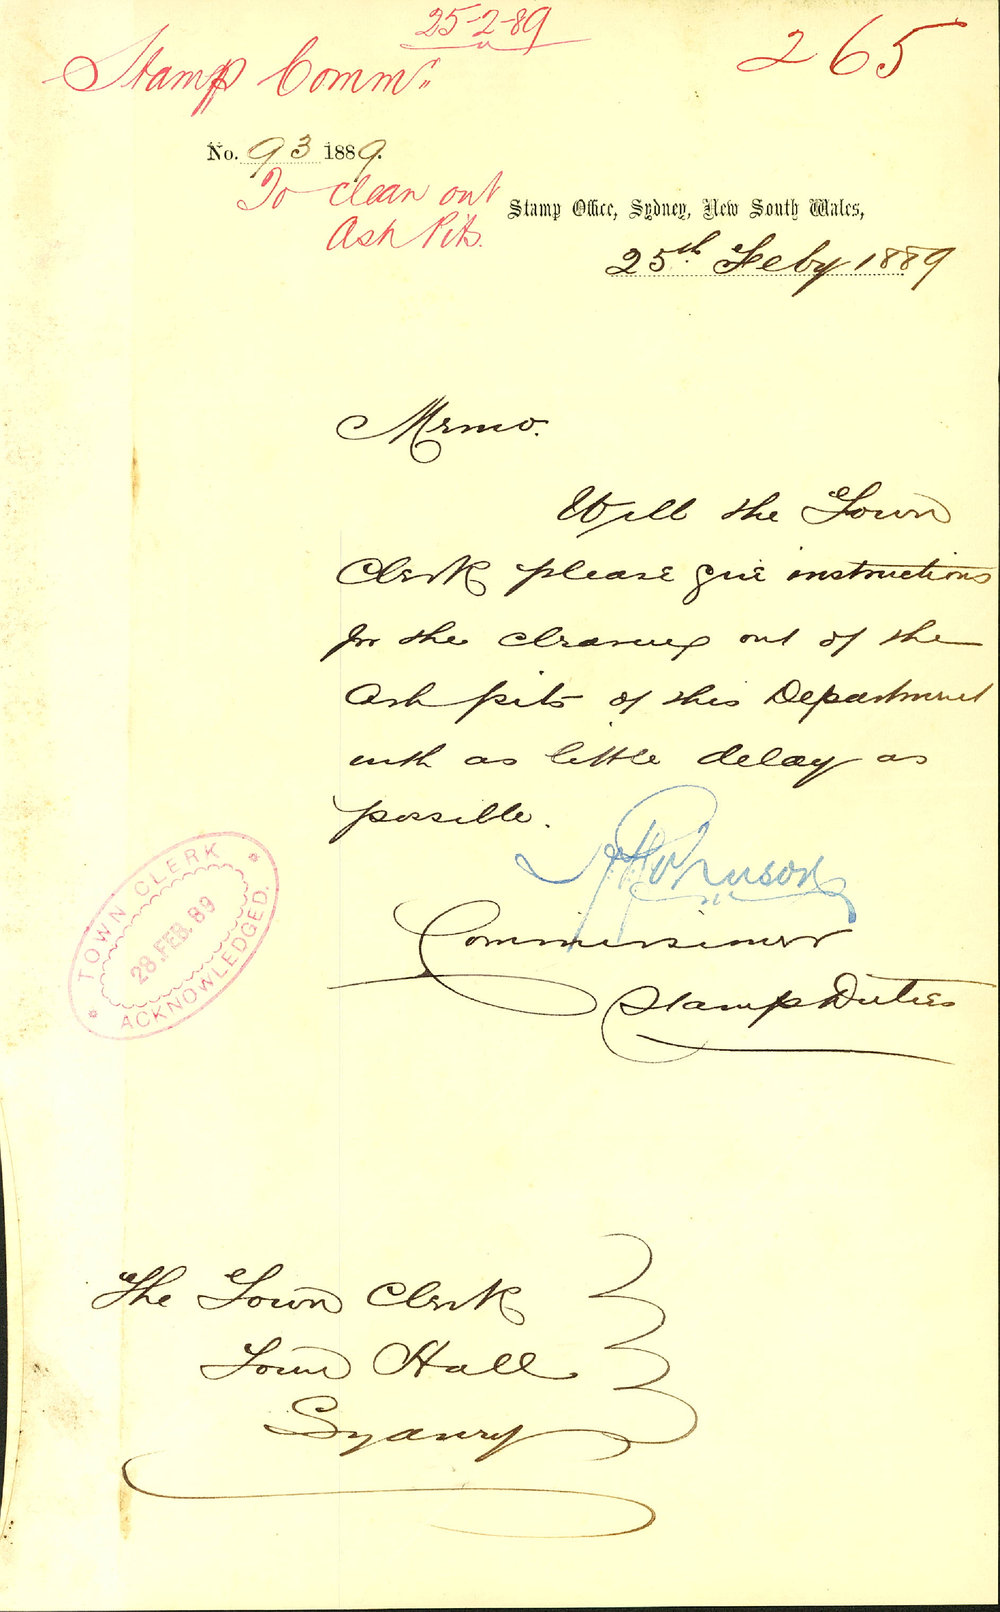 25-2-89
265
Stamp Commr
No. 93 1889.
To clean out
Ash Pits.
Stamp Office, Sydney, New South Wales,
25th Feby 1889
Memo.
Will the Town
Clerk please give instructions
for the cleaning out of the
Ash pits of this Department
with as little delay as
possible.
Commissioner
Stamp Duties
TOWN CLERK
28.FEB.89
ACKNOWLEDGED.
The Town Clerk
Town Hall
Sydney